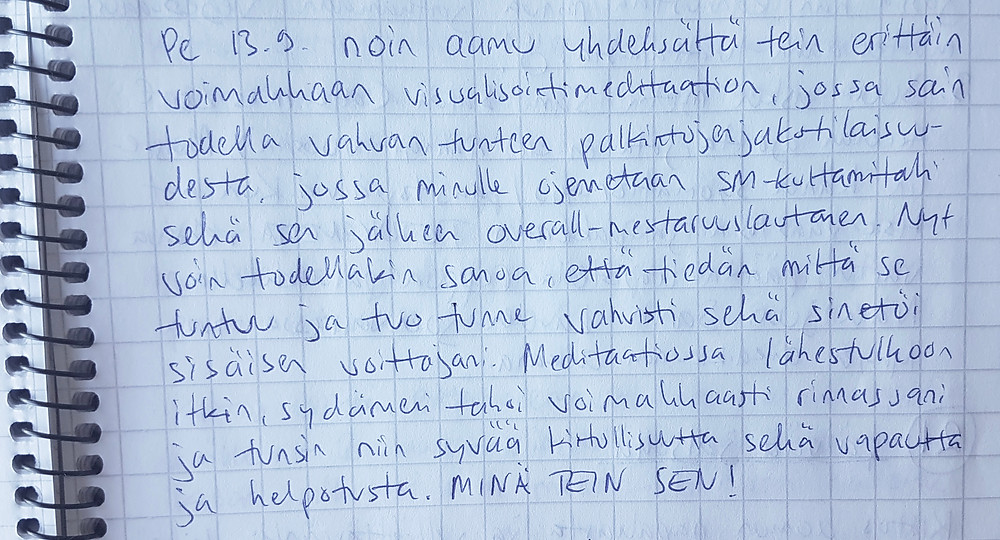 Pe 13.9. noin aamu yhdeksältä tein erittäin
voimakkaan visualisointimeditaation, jossa sain
todella vahvan tunteen palkintojenjakotilaisuu-
desta, jossa minulle ojennetaan SM-kultamitali
sekä sen jälkeen overall-mestaruuslautanen. Nyt
voin todellakin sanoa, että tiedän miltä se
tuntuu ja tuo tunne vahvisti sekä sinetöi
sisäisen voittajani. Meditaatiossa lähestulkoon
itkin, sydämeni takoi voimakkaasti rinnassani
ja tunsin niin syvää kiitollisuutta sekä vapautta
ja helpotusta. MINÄ TEIN SEN!